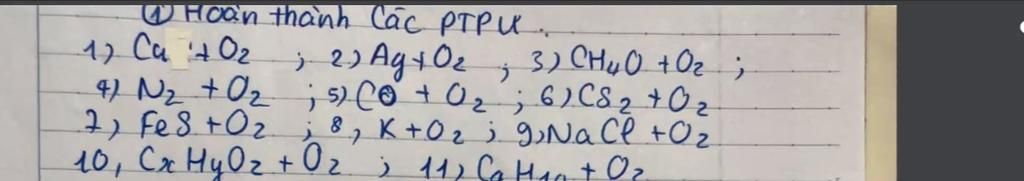 ① Hoàn thành Các PTPU.
1) Ca + O2 ; 2) Ag + O2 ; 3) CH4O + O2 ;
4) N2 + O2 ; 5) CO + O2 ; 6) CS2 + O2
7) FeS + O2 ; 8, K + O2 ; 9, NaCl + O2
10, CxHyO2 + O2 ; 11) + O2